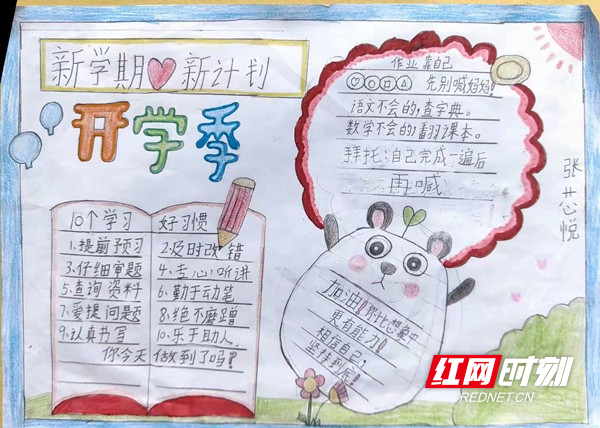 新学期 新计划
开学季
作业靠自己
先别喊妈妈!
语文不会的,查字典。
数学不会的,翻课本。
拜托:自己完成一遍后
再喊
10个学习 好习惯
1.提前预习 2.及时改错
3.仔细审题 4.专心听讲
5.查询资料 6.勤于动笔
7.爱提问题 8.绝不磨蹭
9.认真书写 10.乐于助人.
你今天 做到了吗?
加油!你比想象中
更有能力!
相信自己,
坚持到底!
红网时刻
REDNET.CN